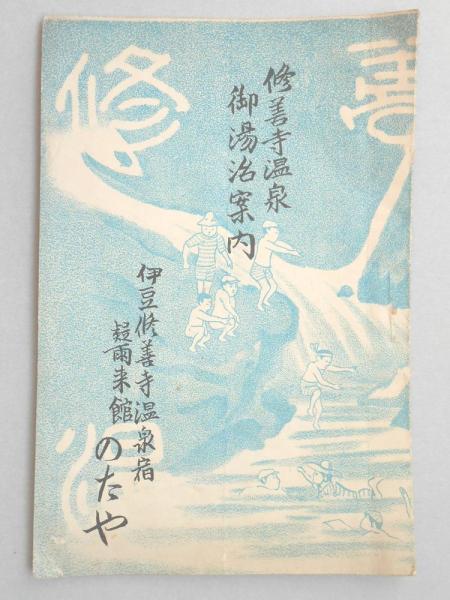 善
修
修善寺温泉
御湯治案内
伊豆修善寺温泉宿
疑雨来館
のだや